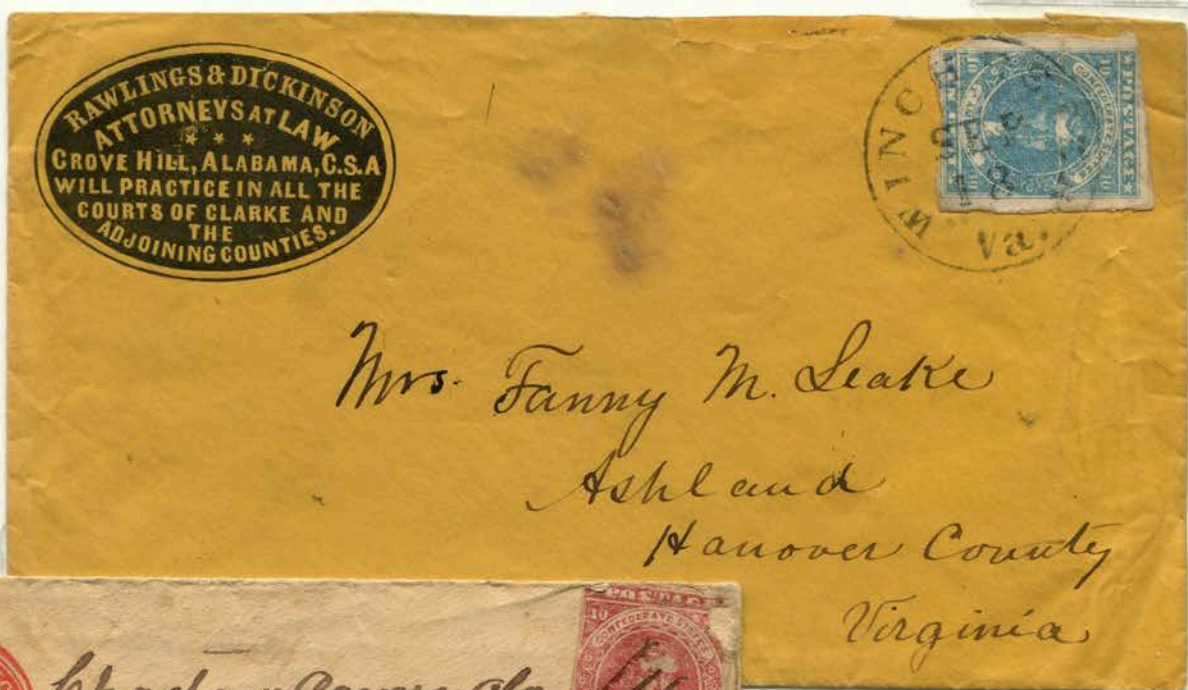 RAWLINGS & DICKINSON
ATTORNEYS AT LAW
* * *
GROVE HILL, ALABAMA, C.S.A
WILL PRACTICE IN ALL THE
COURTS OF CLARKE AND
THE
ADJOINING COUNTIES.
Va.
10 POSTAGE 10
CONFEDERATE STATES
Mrs. Fanny M. Leake
Ashland
Hanover County
Virginia
POSTAGE
10
CONFEDERATE STATES